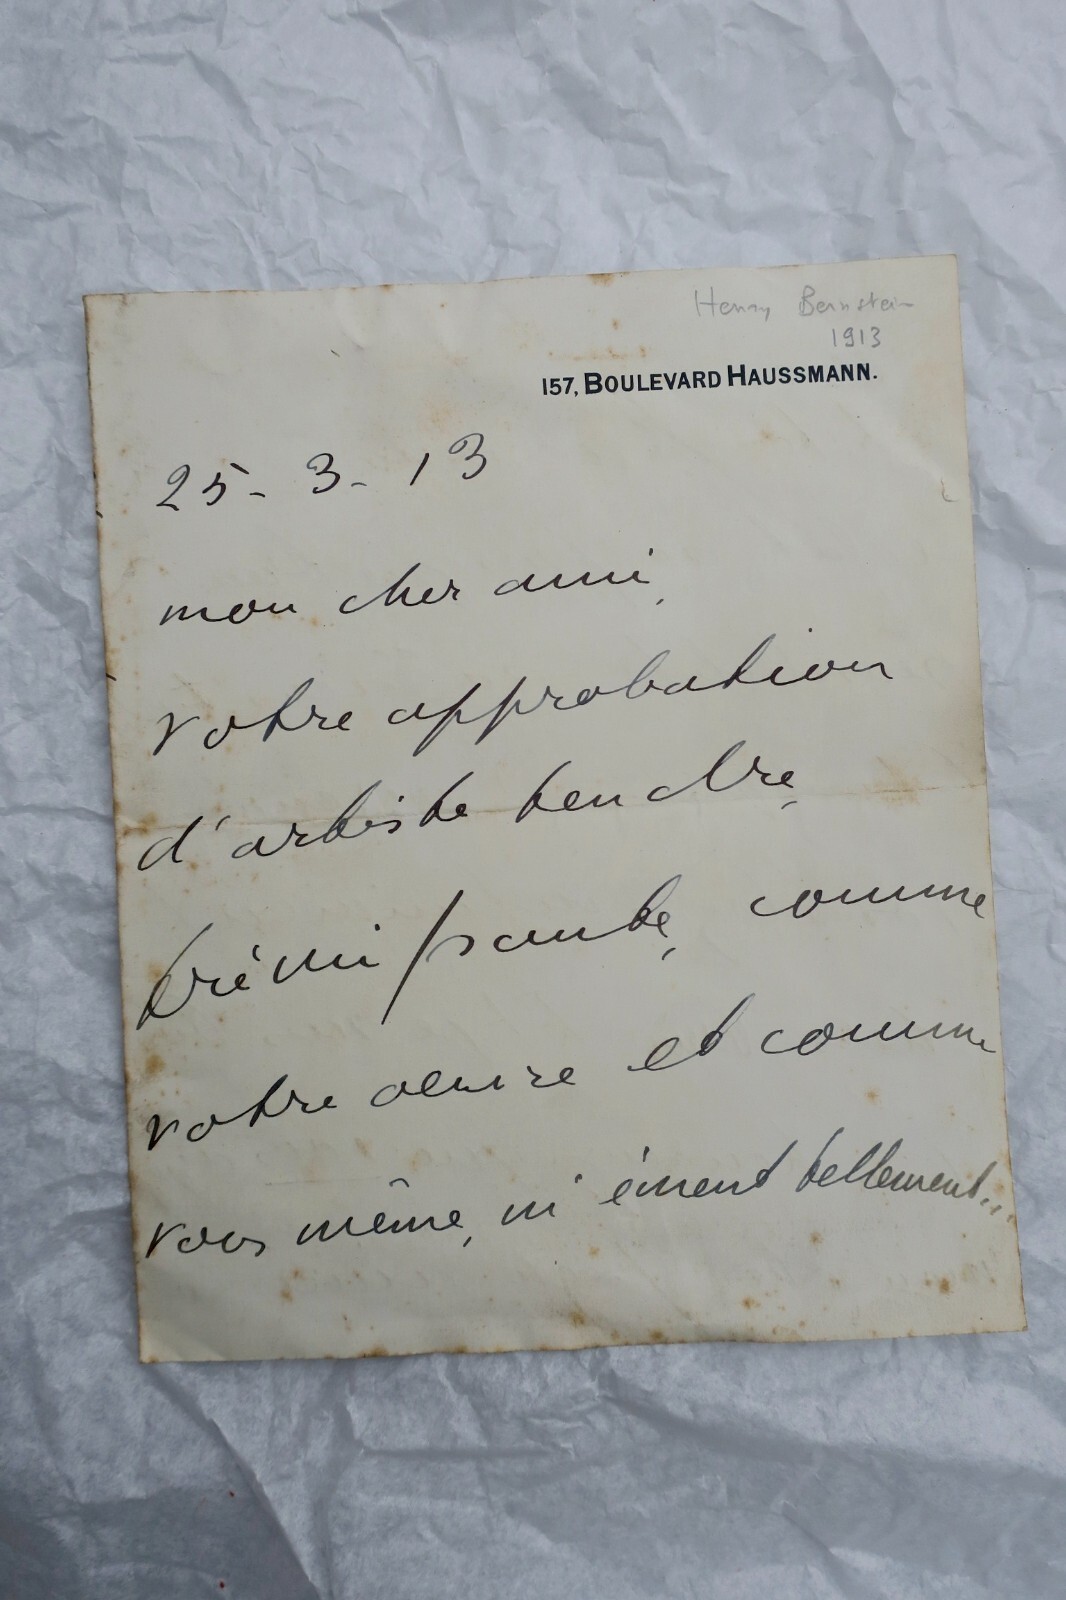 Henry Bernstein
1913
157, BOULEVARD HAUSSMANN.
25-3-13
mon cher ami,
votre approbation
d'artiste tendre,
frémissante, comme
votre œuvre et comme
vous même, m'émeut tellement...